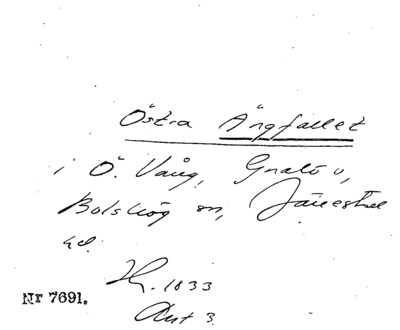 Östra Ängfallet
i Ö. Vång, Gnalöv,
Bolshög sn, Järrestad
hd.
1833
Akt 3.
Nr 7691.